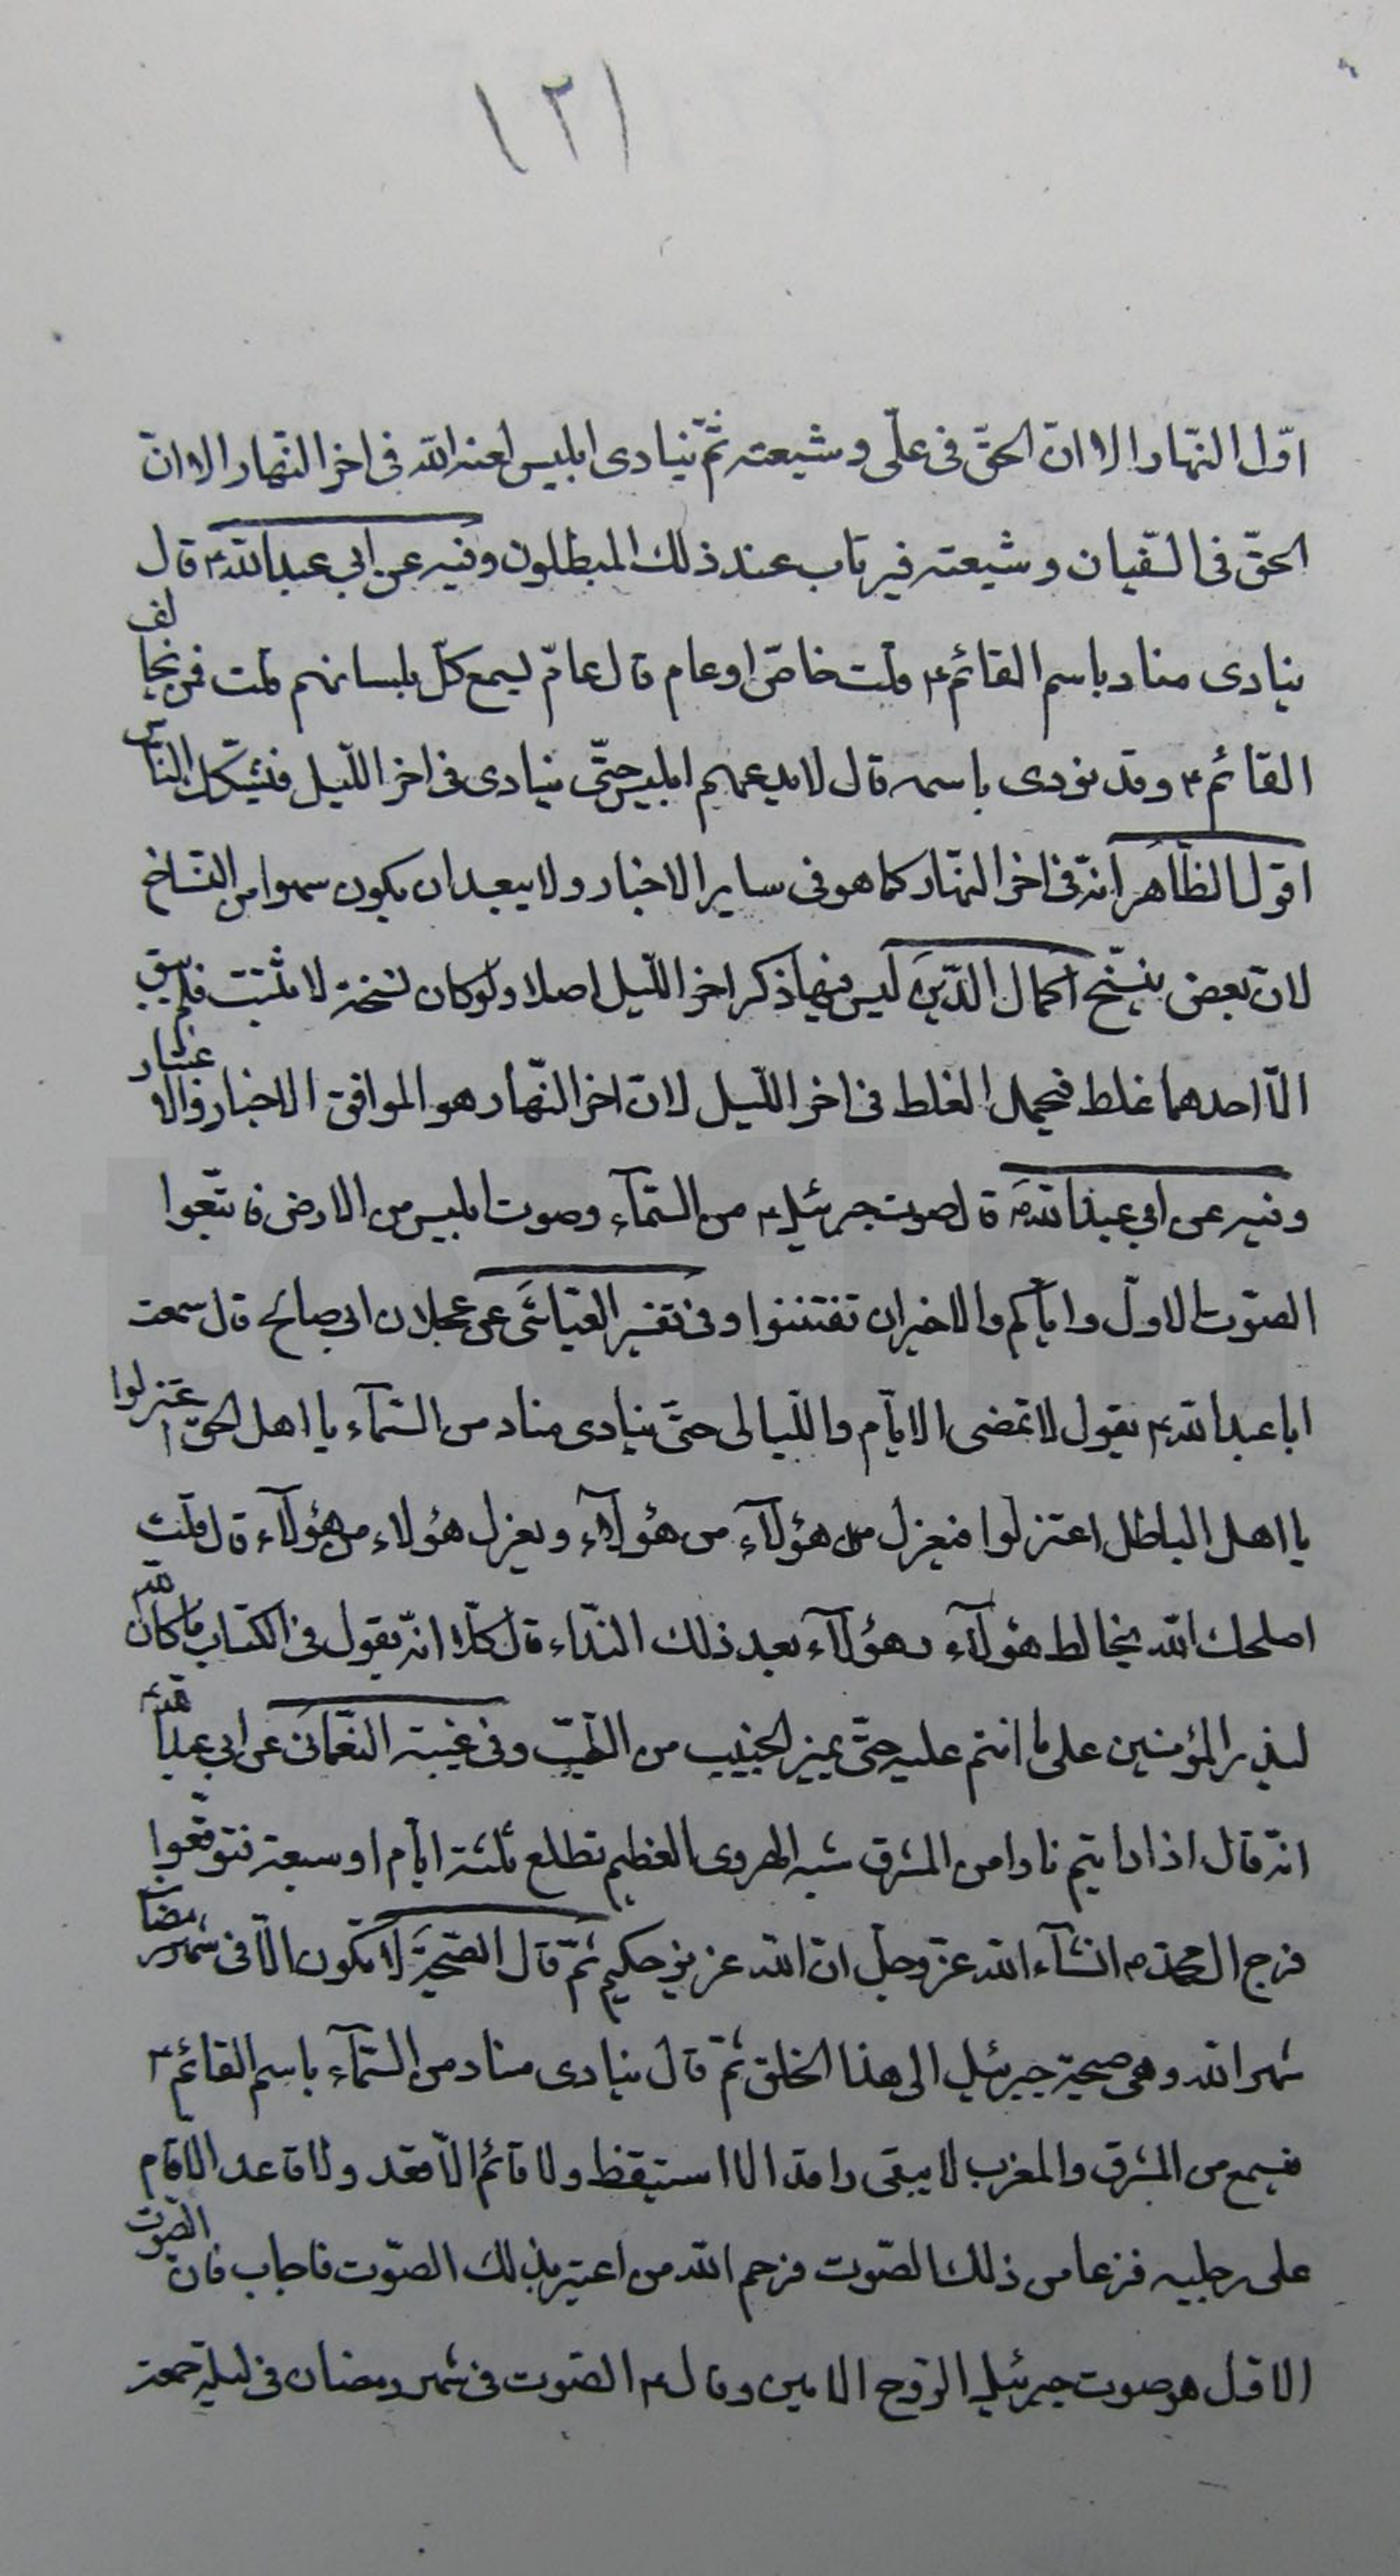 ١٢١
اوّل النّهار الا انّ الحقّ فى علّى و شيعته ثمّ ينادى ابليس لعنه الله فى اخر النّهار الا انّ
الحقّ فى السّفيان و شيعته فيرتاب عند ذلك المبطلون و فيه عن ابي عبدالله ع قال
ينادى مناد باسم القائم ع قلت خاصّ او عام قال عامّ يسمع كلّ بلسانهم قلت فمن يخالف
القائم ع و قد نودى باسمه قال لا يدعهم ابليس حتّى ينادى فى اخر اللّيل فيشكّك النّاس
اقول الظّاهر انّه فى اخر النّهار كما هو فى ساير الاخبار و لا يبعد ان يكون سهوا من النسّاخ
لانّ بعض نسّخ اكمال الدّين ليس فيها ذكر اخر اللّيل اصلا و لو كان نسخة لا مثبت فلم يبق
الّا احدهما غلط فيحمل الغلط فى اخر اللّيل لانّ اخر النّهار هو الموافق الاخبار والا عتبار
و فيه عن ابي عبدالله ع قال صوت جبرئيل ع من السّمآء و صوت ابليس من الارض فاتّبعوا
الصّوت الاوّل و ايّاكم و الاخير ان تفتننوا و فى تفسير العيّاشى عن عجلان ابي صالح قال سمعت
ابا عبدالله ع يقول لا تمضى الايّام و اللّيالى حتّى ينادى مناد من السّمآء يا اهل الحقّ اعتزلوا
يا اهل الباطل اعتزلوا فيعزل هؤلآء من هؤلآء و يعزل هؤلاء من هؤلآء قال قلت
اصلحك الله يخالط هؤلآء بهؤلآء بعد ذلك النّداء قال كلّا انّه يقول فى الكتاب ما كان الله
ليذر المؤمنين على ما انتم عليه حتّى يميز الخبيث من الطّيّب و فى غيبة النّعمانى عن ابي عبدالله ع
انّه قال اذا رايتم نارا من المشرق شبه الهروى العظيم تطلع ثلثة ايّام او سبعة فتوقّعوا
فرج ال محمّد ع انشآء الله عزّ و جلّ انّ الله عزيز حكيم ثمّ قال الصّيحة لا تكون الّا فى شهر رمضان
شهر الله و هى صيحة جبرئيل الى هذا الخلق ثمّ قال ينادى مناد من السّمآء باسم القائم ع
فيسمع من المشرق و المغرب لا يبقى راقد الا استيقظ و لا قائم الّا قعد و لا قاعد الا قام
على رجليه فزعا من ذلك الصّوت فرحم الله من اعتبر بذلك الصّوت فاجاب فانّ الصّوت
الاوّل هو صوت جبرئيل الرّوح الامين و قال ع الصّوت فى شهر رمضان فى ليلة جمعة